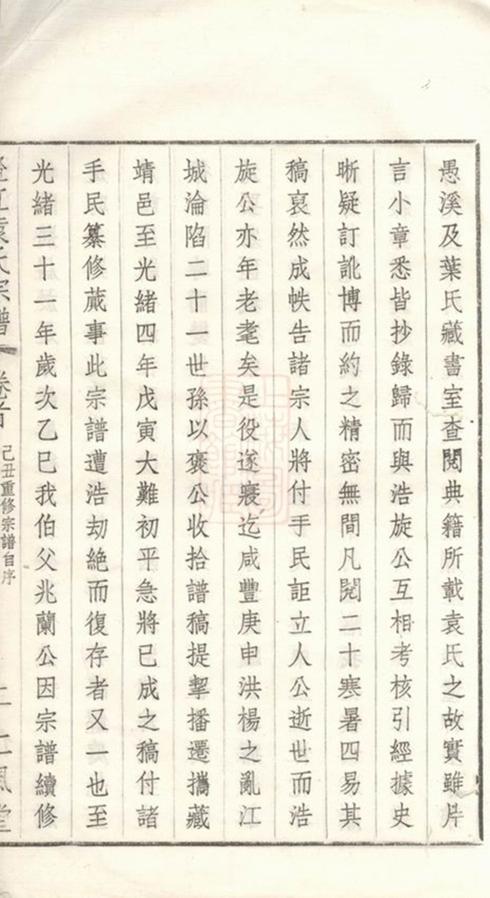 愚溪及葉氏藏書室查閱典籍所載袁氏之故實雖片
言小章悉皆抄錄歸而與浩旋公互相考核引經據史
晰疑訂訛博而約之精密無間凡閱二十寒暑四易其
稿裒然成帙告諸宗人將付手民詎立人公逝世而浩
旋公亦年老耄矣是役遂寢迄咸豐庚申洪楊之亂江
城淪陷二十一世孫以褒公收拾譜稿提挈播遷攜藏
靖邑至光緒四年戊寅大難初平急將已成之稿付諸
手民纂修蕆事此宗譜遭浩劫絕而復存者又一也至
光緒三十一年歲次乙巳我伯父兆蘭公因宗譜續修
江袁氏宗譜 卷首 己丑重修宗譜自序